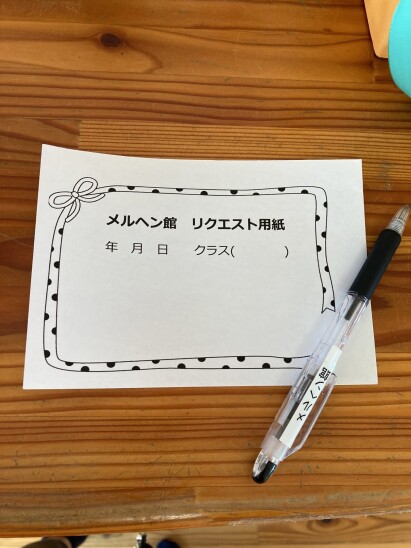 メルヘン館　リクエスト用紙
年　月　日　　クラス(　　　　)
メルヘン館